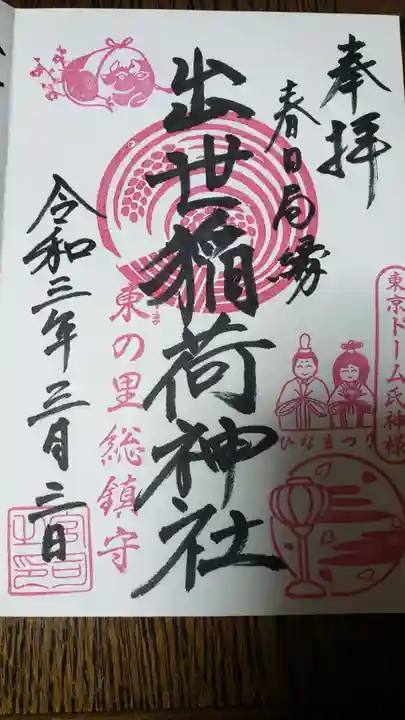 奉拝
春日局縁
出世稲荷神社
東の里総鎮守
令和三年三月三日
東京ドーム氏神様
ひなまつり